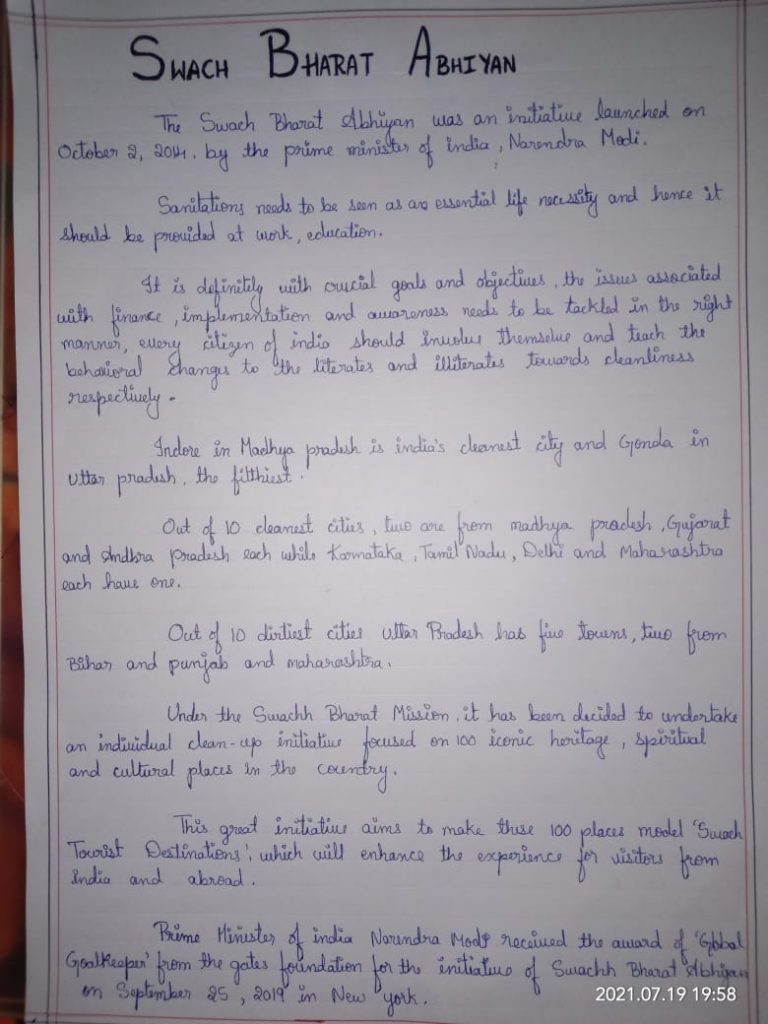 SWACH BHARAT ABHIYAN
The Swach Bharat Abhiyan was an initiative launched on
October 2, 2014, by the prime minister of india, Narendra Modi.
Sanitations needs to be seen as an essential life necessity and hence it
should be provided at work, education.
It is definitely with crucial goals and objectives, the issues associated
with finance, implementation and awareness needs to be tackled in the right
manner, every citizen of india should involve themselve and teach the
behavioral changes to the literates and illiterates towards cleanliness
respectively.
Indore in Madhya pradesh is india's cleanest city and Gonda in
Uttar pradesh, the filthiest.
Out of 10 cleanest cities, two are from madhya pradesh, Gujarat
and Andhra Pradesh each while Karnataka, Tamil Nadu, Delhi and Maharashtra
each have one.
Out of 10 dirtiest cities Uttar Pradesh has five towns, two from
Bihar and punjab and maharashtra.
Under the Swachh Bharat Mission, it has been decided to undertake
an individual clean-up initiative focused on 100 iconic heritage, spiritual
and cultural places in the country.
This great initiative aims to make these 100 places model 'Swach
Tourist Destinations', which will enhance the experience for visitors from
India and abroad.
Prime Minister of india Narendra Modi received the award of 'Global
Goalkeeper' from the gates foundation for the initiative of Swachh Bharat Abhiyan
on September 25, 2019 in New york.
2021.07.19 19:58